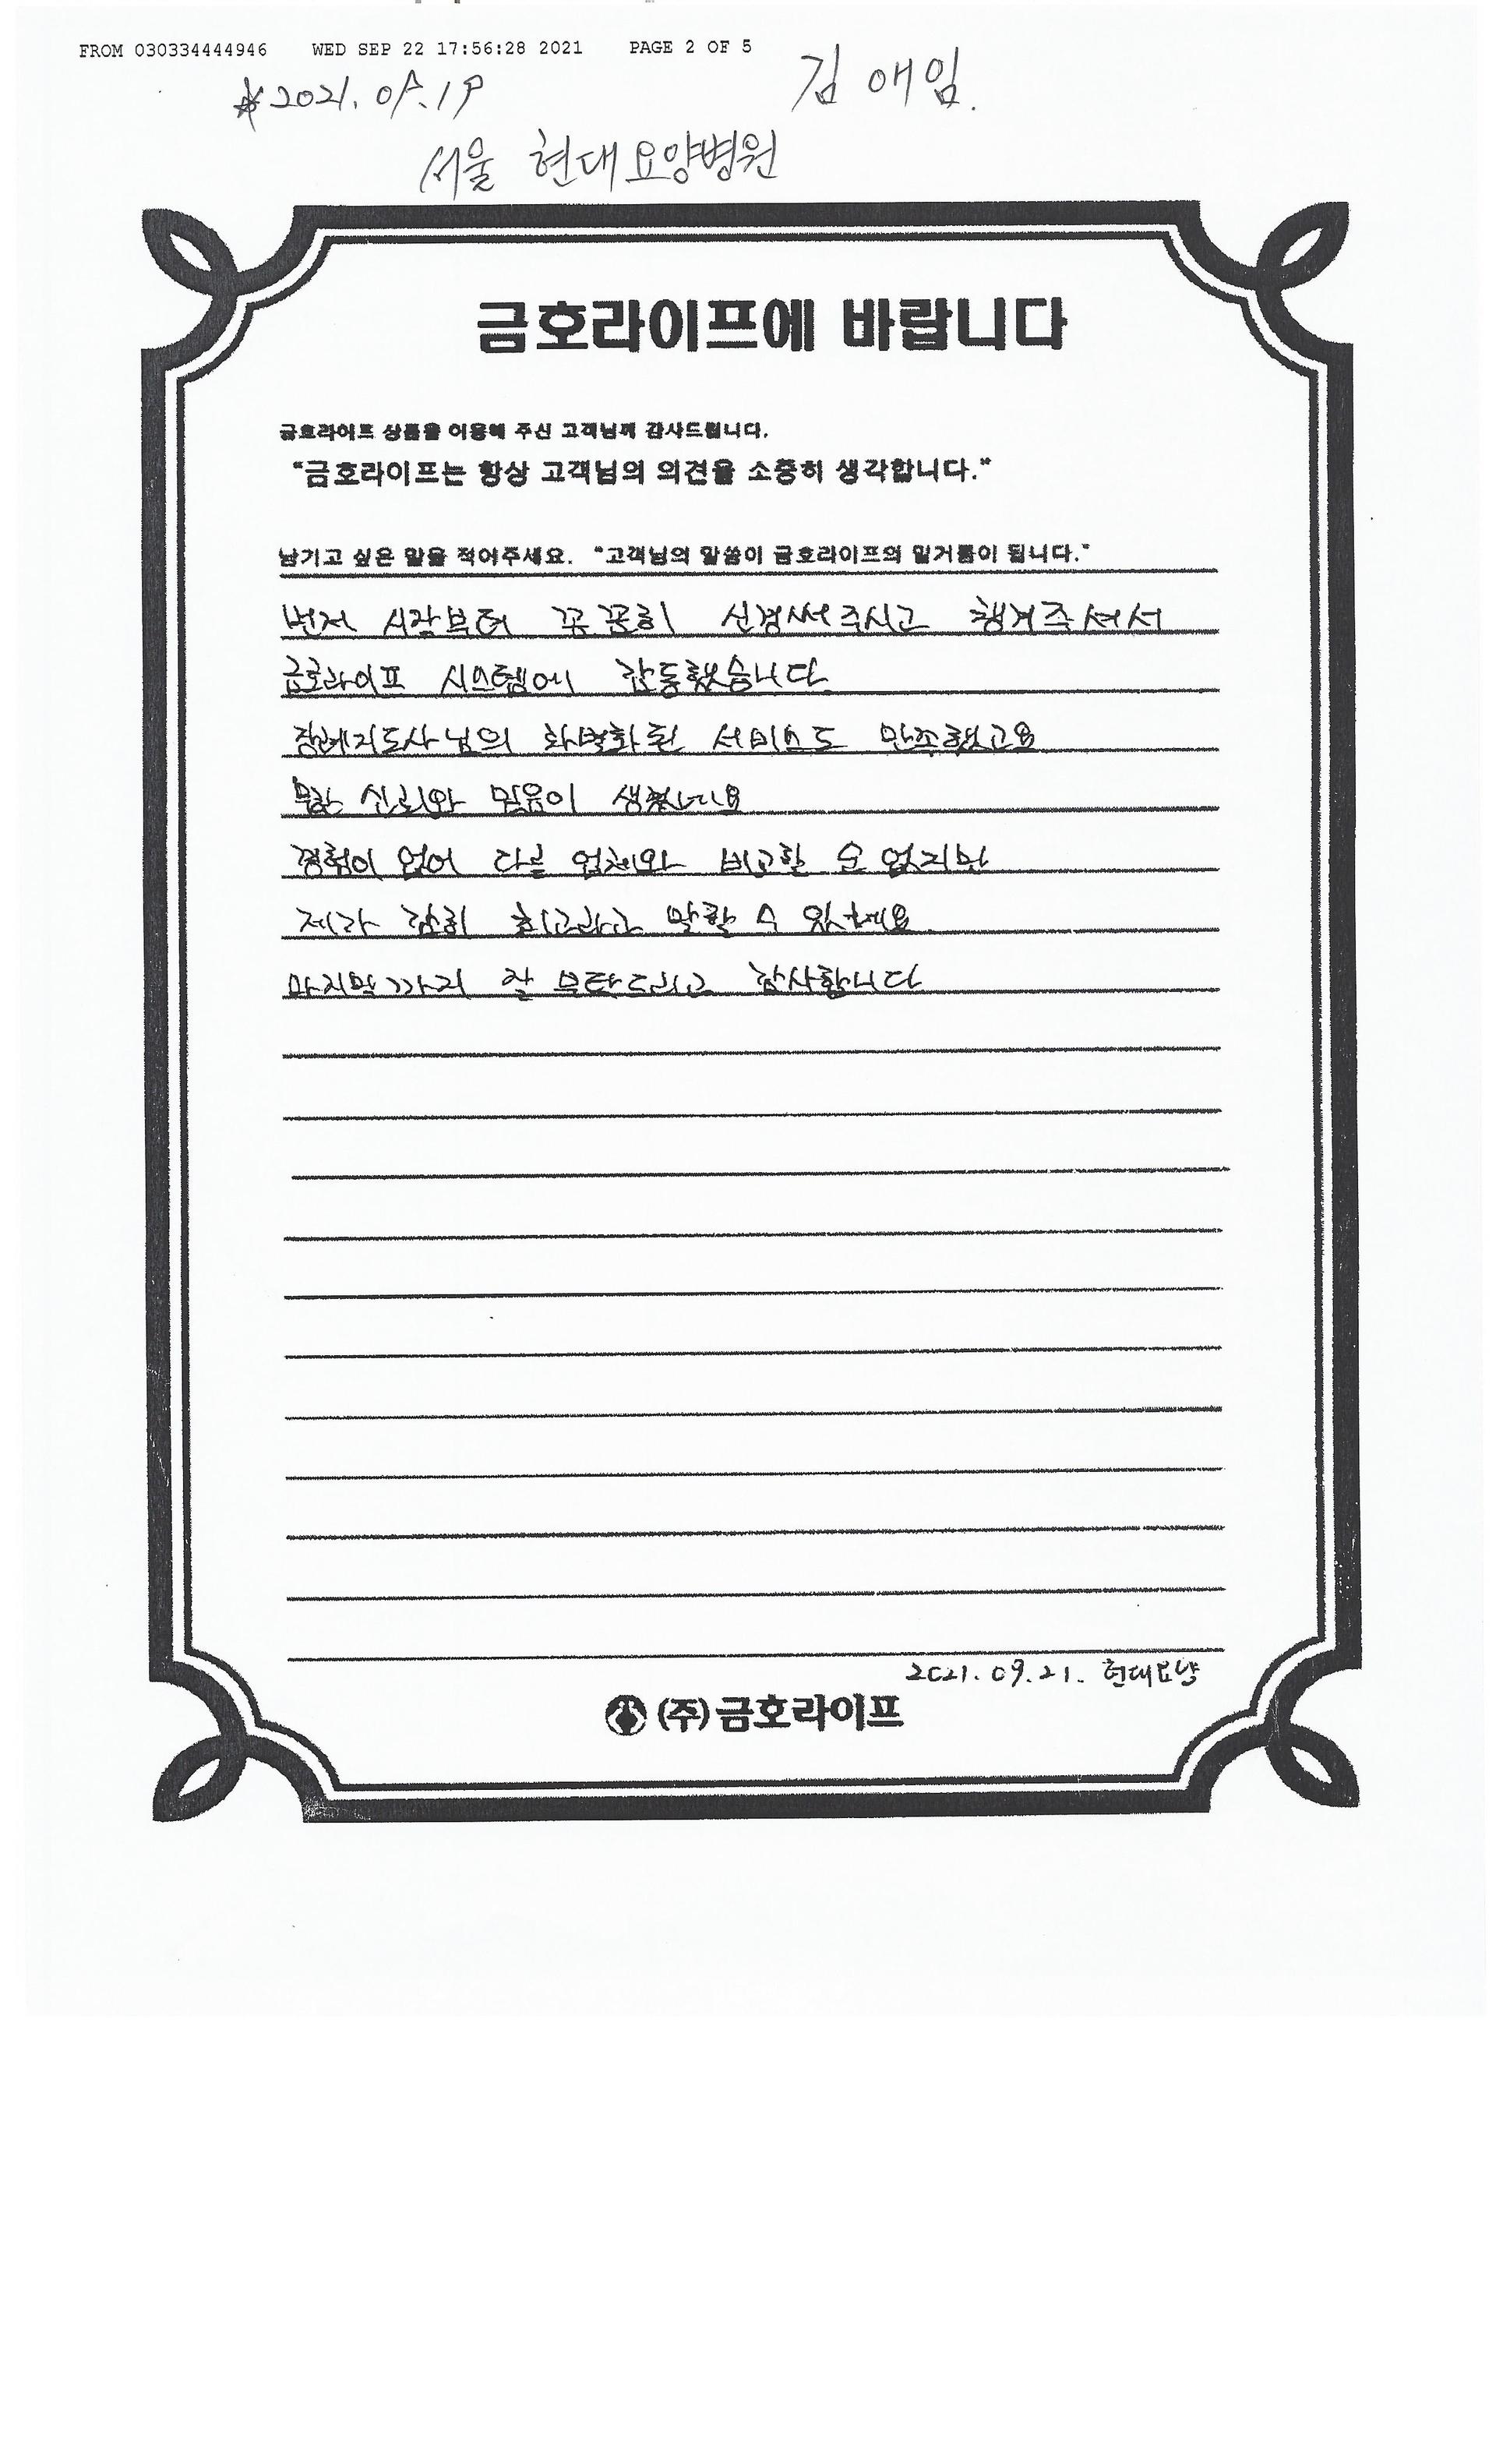 FROM 030334444946 WED SEP 22 17:56:28 2021 PAGE 2 OF 5
김애임.
서울 현대요양병원
금호라이프에 바랍니다
금호라이프 상품을 이용해 주신 고객님께 감사드립니다.
"금호라이프는 항상 고객님의 의견을 소중히 생각합니다."
남기고 싶은 말을 적어주세요. "고객님의 말씀이 금호라이프의 밑거름이 됩니다."
먼저 시작부터 꼼꼼히 신경써주시고 챙겨주셔서
금호라이프 시스템에 감동했습니다
장례지도사님의 차별화된 서비스도 만족했고요
무한 신뢰와 믿음이 생겼네요
경험이 없어 다른 업체와 비교할 순 없지만
제가 감히 최고라고 말할 수 있겠네요
마지막까지 잘 부탁드리고 감사합니다
2021.09.21. 현대요양
(주)금호라이프